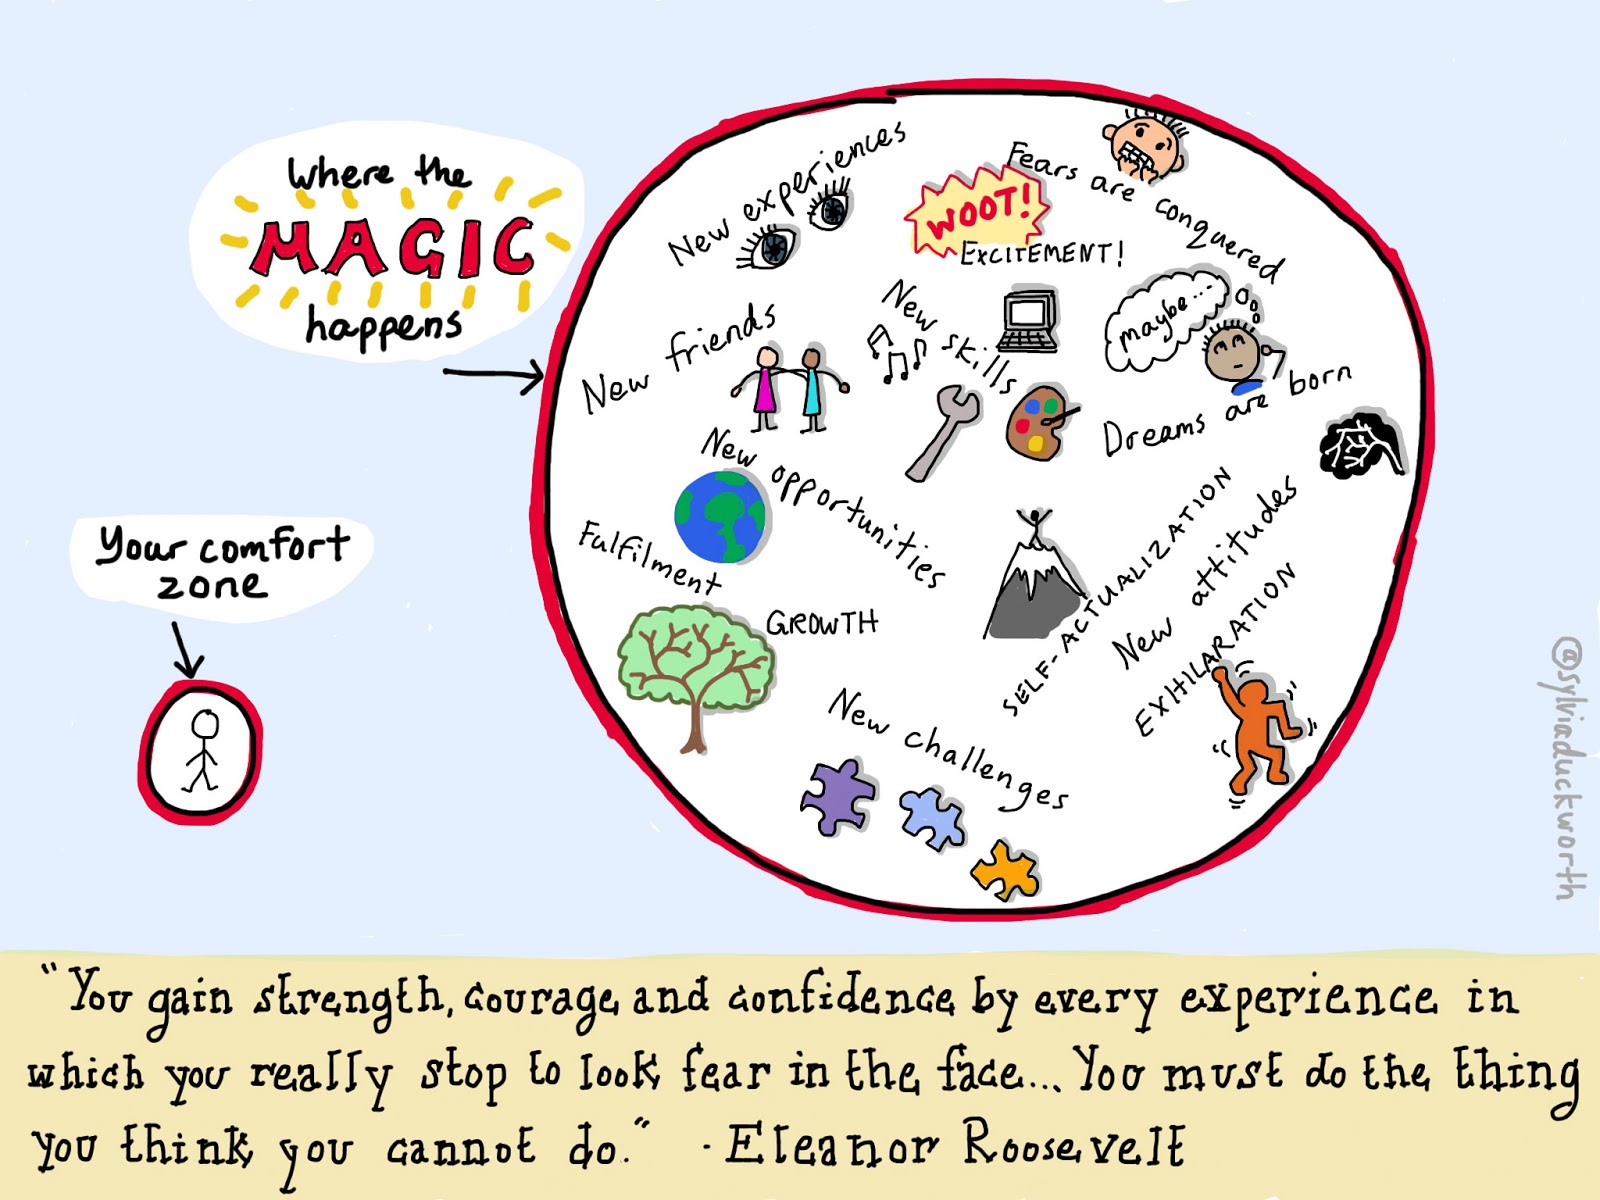 Where the
MAGIC
happens
Your comfort
zone
New experiences
WOOT!
EXCITEMENT!
Fears are conquered
New friends
New skills
maybe...
Dreams are born
New opportunities
Fulfilment
GROWTH
SELF-ACTUALIZATION
New attitudes
EXIHILARATION
New challenges
@sylviaduckworth
"You gain strength, courage and confidence by every experience in
which you really stop to look fear in the face... You must do the thing
you think you cannot do." - Eleanor Roosevelt